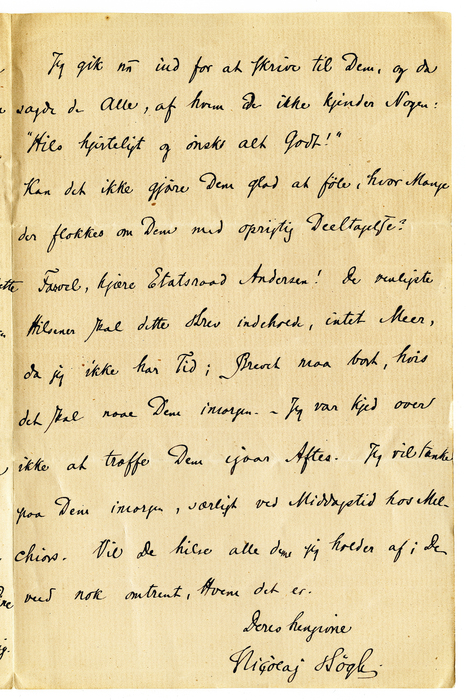 Jeg gik nu ind for at skrive til Dem, og da
sagde de Alle, af hvem De ikke kjender Nogen:
"Hils hjerteligt og ønsk alt Godt!"
Kan det ikke gjøre Dem glad at föle, hvor Mange
der flokkes om Dem med oprigtig Deeltagelse?
Farvel, kjære Etatsraad Andersen! De venligste
Hilsener skal dette Brev indeholde, intet Meer,
da jeg ikke har Tid; Brevet maa bort, hvis
det skal naae Dem imorgen. – Jeg var kjed over
ikke at træffe Dem igaar Aftes. Jeg vil tænke
paa Dem imorgen, særligt ved Middagstid hos Mel-
chiors. Vil De hilse alle dem jeg holder af; De
veed nok omtrent, Hvem det er.
Deres hengivne
Nicolaj Bøgh.